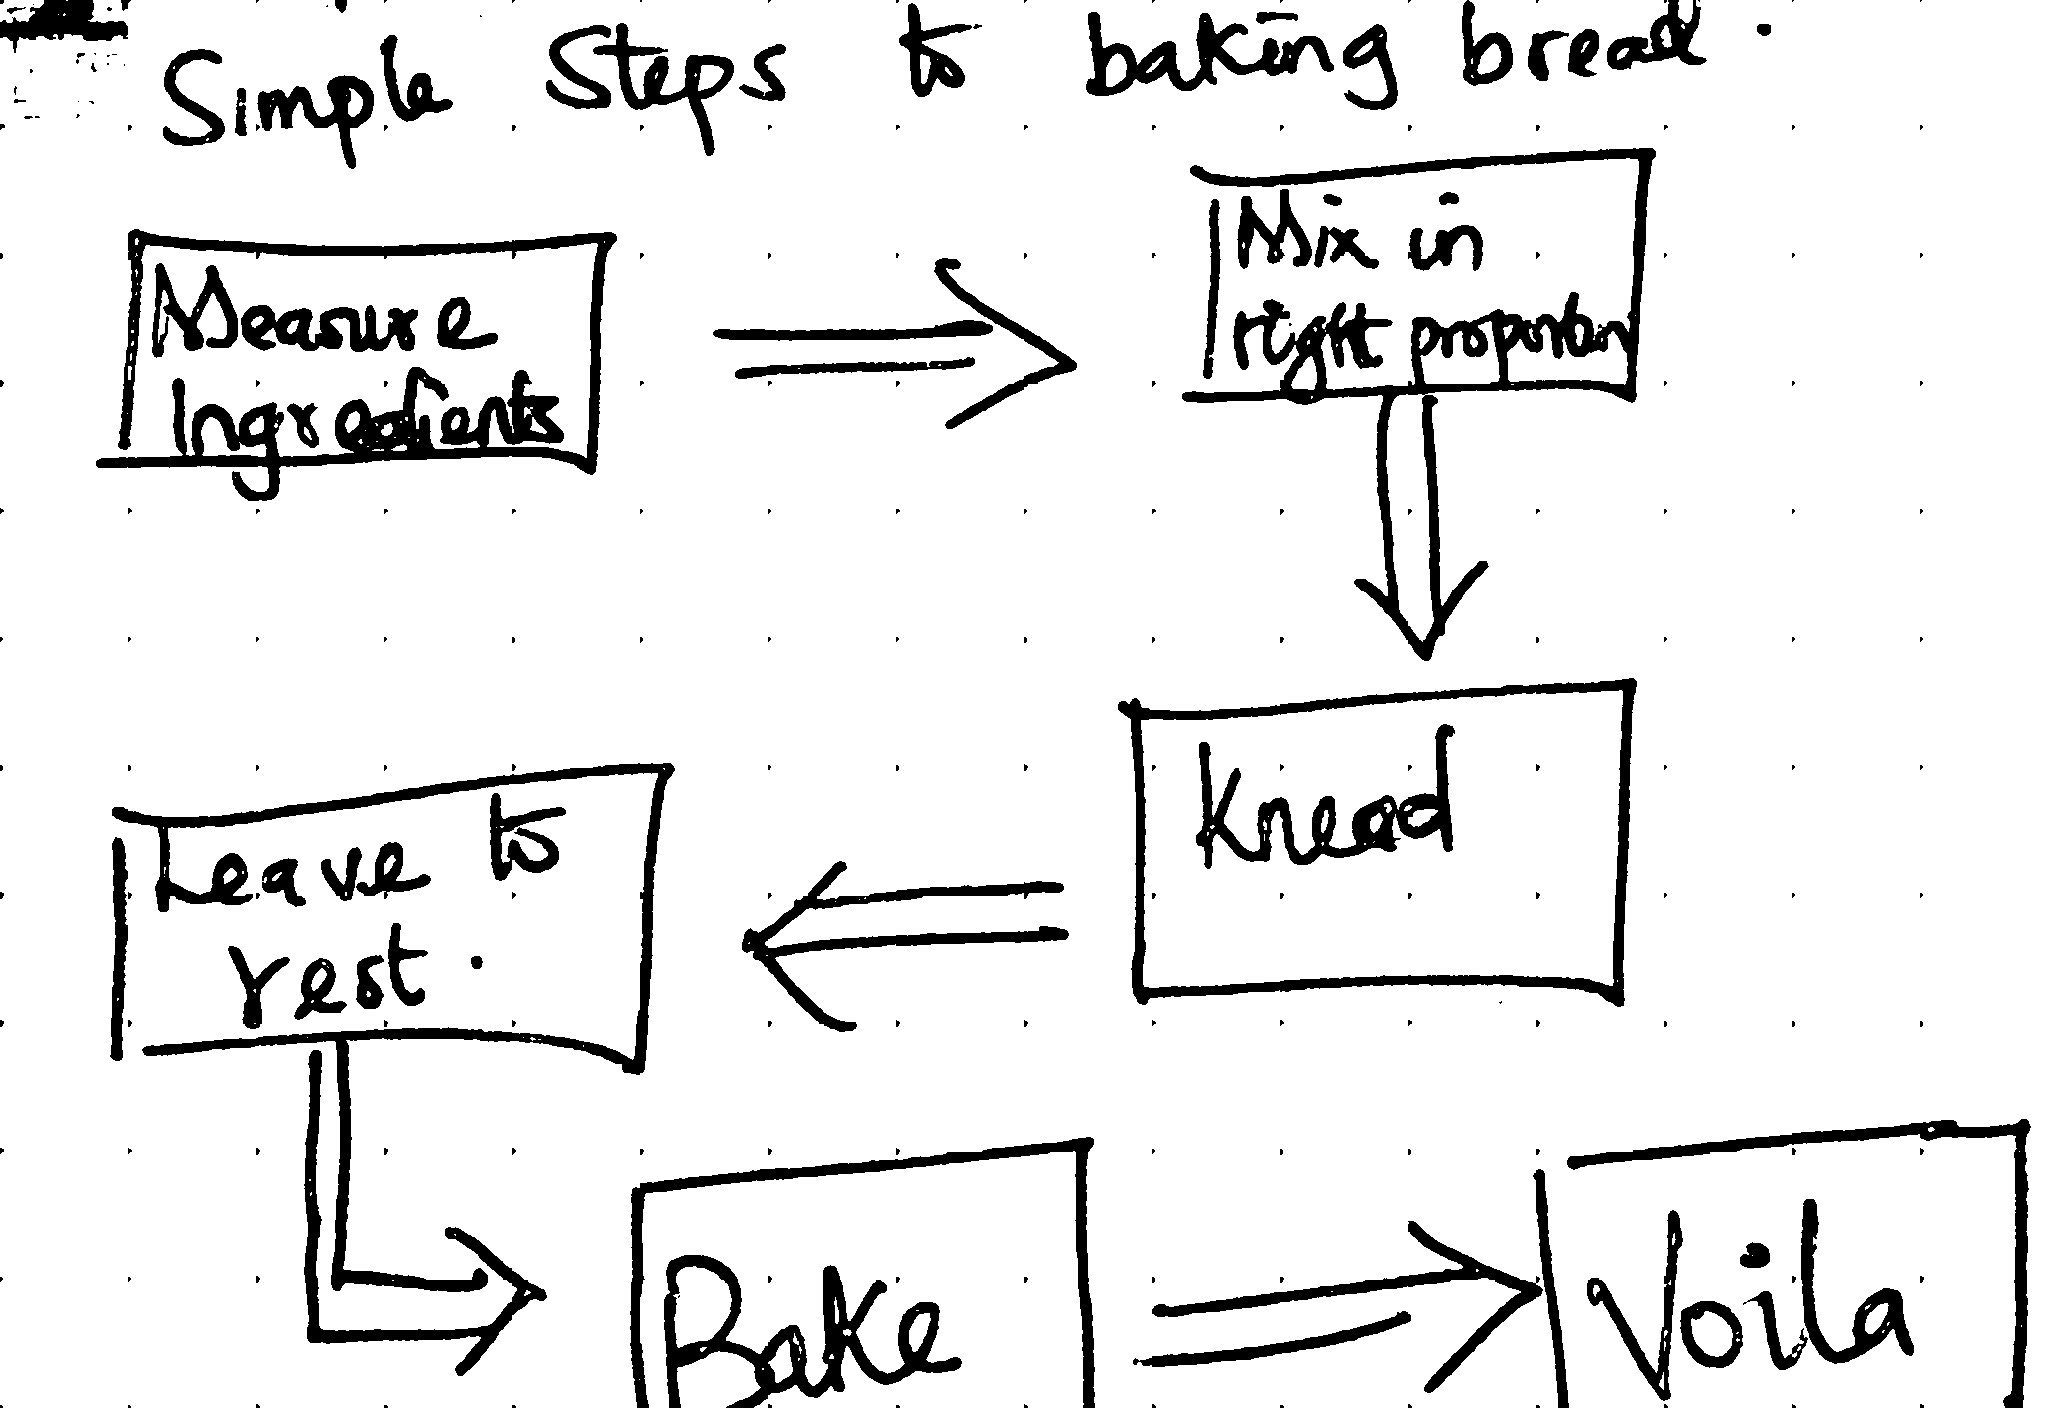 Simple Steps to baking bread.
Measure
Ingredients
Mix in
right proportion
Knead
Leave to
rest.
Bake
Voila